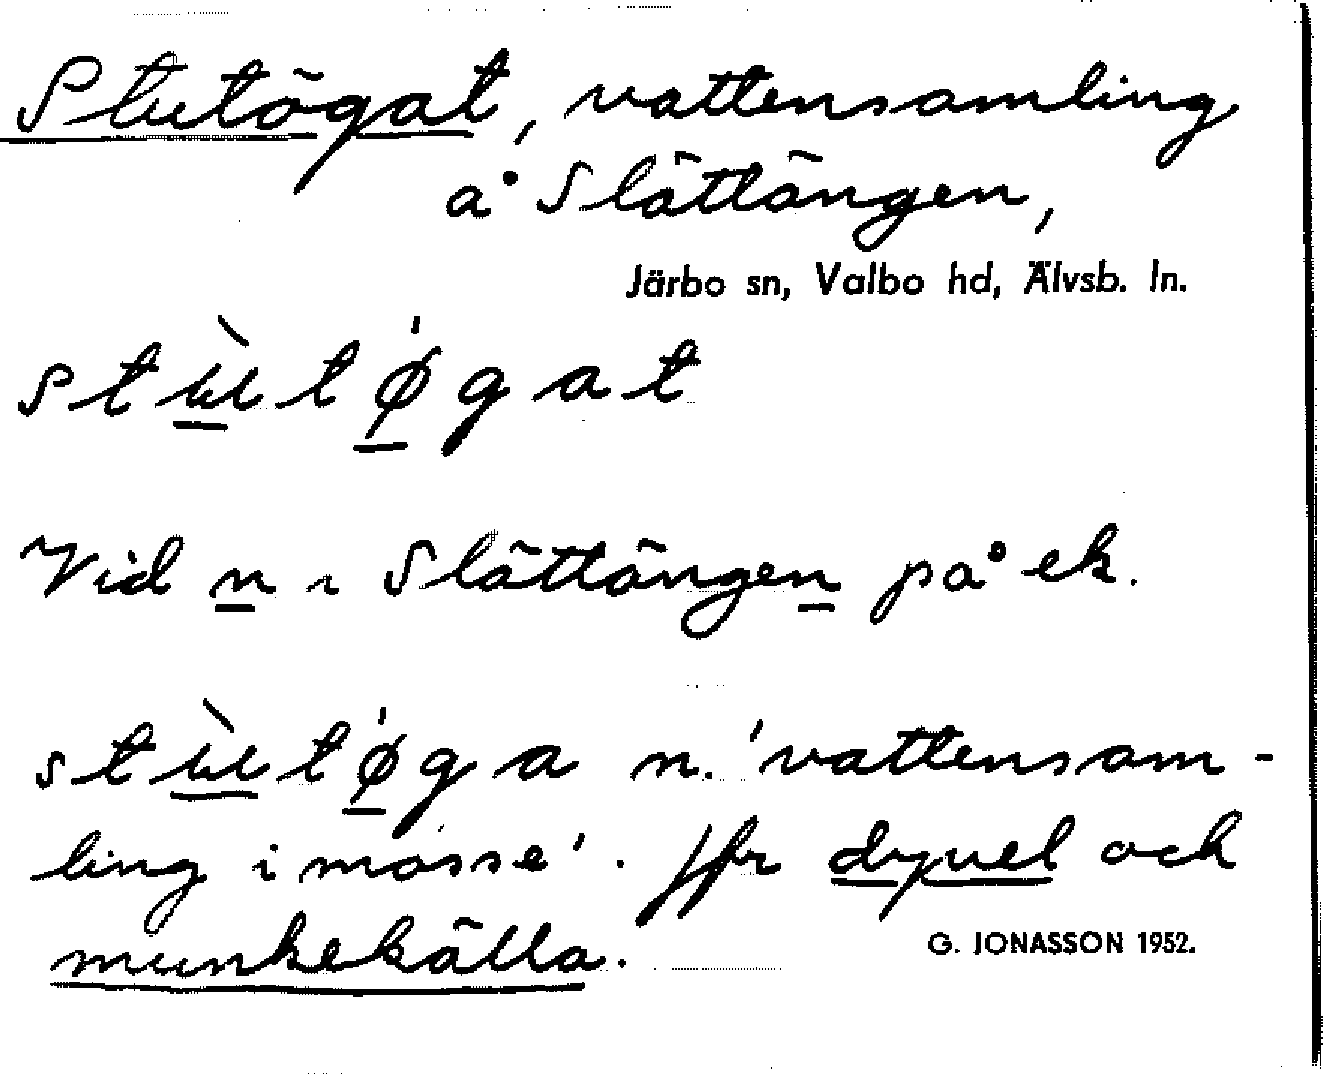 Stutögat, vattensamling
å Slättängen,
Järbo sn, Valbo hd, Älvsb. ln.
stù̲tǿ̲gat
Vid n̲ ı Slättängen̲ på ek.
stù̲tǿ̲ga n. 'vattensam-
ling i mosse'. Jfr dyvel och
munkekälla.
G. JONASSON 1952.